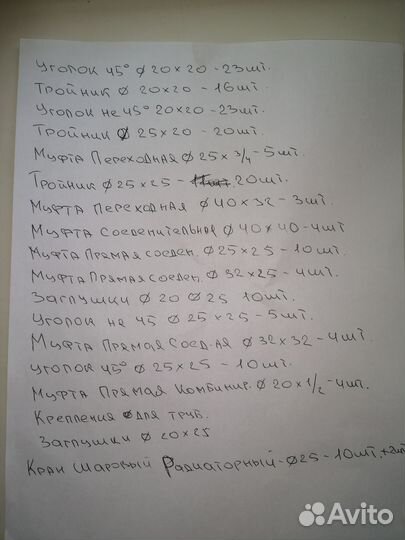 Уголок 45° ø 20×20 - 23шт.
Тройник ø 20×20 - 16шт.
Уголок не 45° 20×20 - 23шт.
Тройник ø 25×20 - 20шт.
Муфта Переходная ø 25× 3/4 - 5шт.
Тройник ø 25×25 - 20шт.
Муфта Переходная ø 40×32 - 3шт.
Муфта Соеденительная ø 40×40 - 4шт
Муфта Прямая соеден. ø 25×25 - 10шт.
Муфта Прямая Соеден. ø 32×25 - 4шт.
Заглушки ø 20 ø 25 10шт.
Уголок не 45 ø 25×25 - 5шт.
Муфта Прямая Соед-ая ø 32×32 - 4шт.
Уголок 45° ø 25×25 - 10шт.
Муфта Прямая Комбинир. ø 20×1/2 - 4шт.
Крепления для труб.
Заглушки ø 20×25
Кран Шаровый Радиаторный - ø25 - 10шт. +2шт
Avito